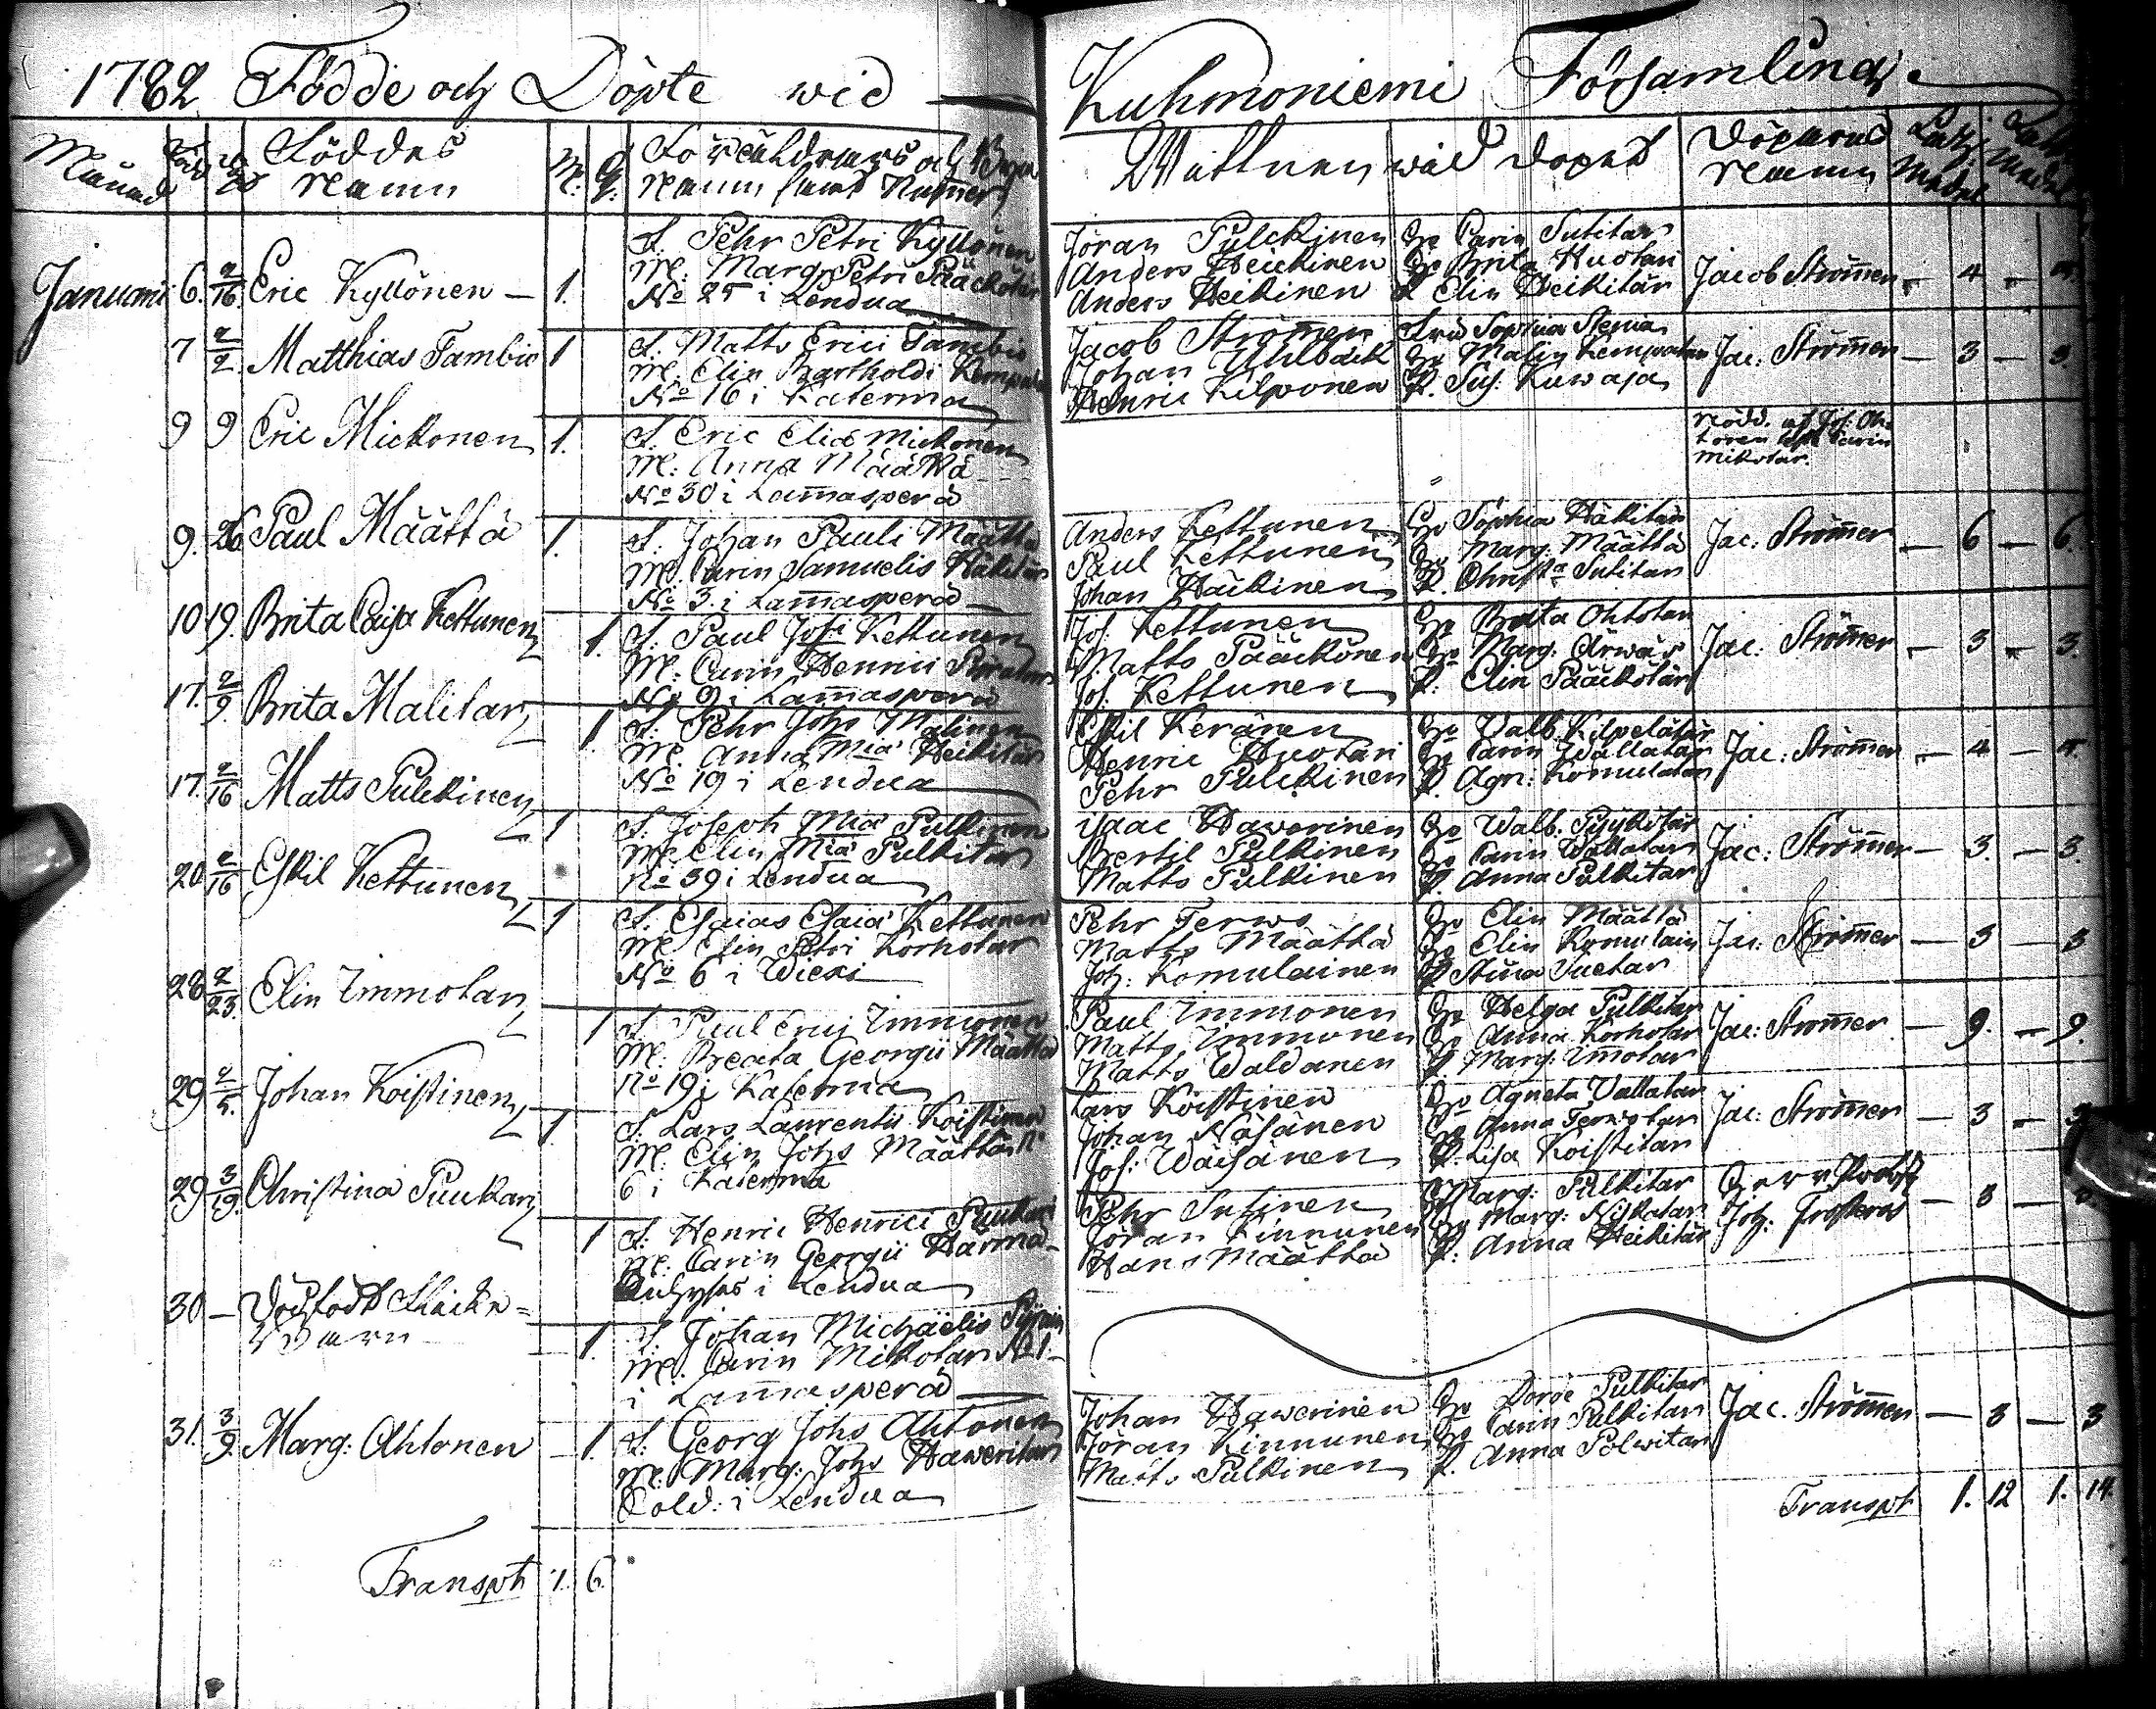 1782 Födde och Döpte wid Kuhmoniemi Församling.
Månad
Föddes Namn
M. Q.
Föräldrars och Byars Namn samt Nummer
Wittnen wid Dopet
Döparens Namn
Januarii 6. 2/16 Eric Kyllönen — 1.
F. Pehr Petri Kyllönen
M: Marg. Petri Pääckötär
No 25 i Lendua
Jöran Pulckinen
Anders Heickinen
Anders Heikinen
Ho Carin Sutitar
Ho Brita Huotari
P. Elin Heikitär
Jacob Strömmer — 4 —
7 2/2 Matthias Tambio 1
F. Matts Erici Tambio
M: Elin Bartholdi
No 16 i Katerma
Jacob Strömer
Johan Uhlbäck
Henric Kilponen
Fru Sophia
Ho Malin Kempatar
P. Sus. Kuwaja
Jac: Strömer — 3 — 3.
9 9 Eric Mickonen 1.
F. Eric Eliæ Mickonen
M: Anna Määttä
No 30 i Lam̄asperä
Nödd. af Joh. Ahtonen
Carin Mikotar.
9. 26 Paul Määttä 1.
F. Johan Pauli Määttä
M. Carin Samuelis
No 3. i Lam̄asperä
Anders Kettunen
Paul Kettunen
Johan Häikinen
Ho Sophia Häkitär
Ho Marg: Määttä
P. Christa Sutitar
Jac: Strömer — 6 — 6.
10 19. Brita Caisa Kettunen 1.
F. Paul Joh: Kettunen
M: Carin Henrici
No 9 i Lam̄asperä
Joh. Kettunen
Matts Pääckönen
Joh. Kettunen
Ho Brita Ohtotar
Ho Marg. Ärwäs
P: Elin Pääckötär
Jac: Strömer — 3 — 3.
17. 2/9. Brita Malitar 1.
F. Pehr Johs Malinen
M. Anna Miä Heikitär
No 19 i Lendua
Eskil Keränen
Henric Huotari
Pehr Pulckinen
Ho Walb. Kilpelätär
Ho Carin Wallatar
P. Agn: Komulatar
Jac: Strömer — 4 —
17. 2/16 Matts Pulckinen 1
F. Joseph Miä Pulkinen
M. Elin Miä Pulkitar
No 39 i Lendua
Isaac Hawerinen
Bertil Pulkinen
Matts Pulkinen
Ho Walb. Pyykötär
Ho Carin Wallatar
P. Anna Pulkitar
Jac: Strömer — 3. — 3.
20 2/16 Eskil Kettunen 1
F. Esaias Esaiä Kettunen
M. Elin Petri Korhotar
No 6 i Wieki
Pehr Terwo
Matts Määttä
Joh: Komulainen
Ho Elin Määttä
Ho Elin Komulain
P. Stina
Jac: Strömer — 3 — 3
28 2/23. Elin Immotar 1
F. Paul Erici Immonen
M: Beata Georgii Määttä
No 19 i Katerma
Paul Immonen
Matts Immonen
Matts Waldanen
Ho Helga Pulkitar
Ho Anna Korhotar
P. Marg: Imotar
Jac: Strömer — 9. — 9.
29 2/5. Johan Koistinen 1.
F. Lars Laurentii Koistinen
M: Elin Johs Määttä No
6 i Katerma
Lars Koistinen
Johan Näsänen
Jos: Wäisänen
Ho Agneta Wallatar
Ho Anna Terwotar
P. Lisa Koistitar
Jac: Strömer — 3 — 3
29 3/19. Christina Puukari 1
F. Henric Henrici Puukari
M: Carin Georgii Härmä
Inhyses i Lendua
Pehr Sutinen
Jöran Kinnunen
Hans Määttä
Marg: Pulkitar
Ho Marg: Nykätar
P: Anna Heikitär
Joh: Frosterus — 3 —
30 — Dödfödt Flickebarn — 1.
F. Johan Michaëlis
M. Carin Mikotar No 1.
i Lam̄asperä
31. 3/9. Marg: Ahtonen — 1.
F. Georg Johs Ahtonen
M: Marg: Johs Haweritar
Sold: i Lendua
Johan Hawerinen
Jöran Kinnunen
Matts Pulkinen
Ho Dorde Pulkitar
Ho Carin Pulkitar
P. Anna Polwitar
Jac. Strömer — 3 — 3
Transpt 1. 12 1. 14.
Transpt 7. 6.